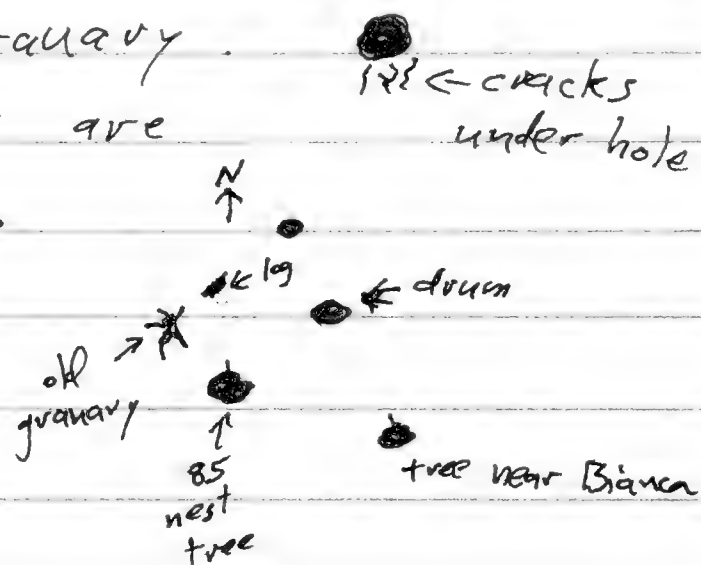 granary
← cracks
are
under hole
N
↑
← log
← drum
old
granary
85
nest
tree
tree near Bianca